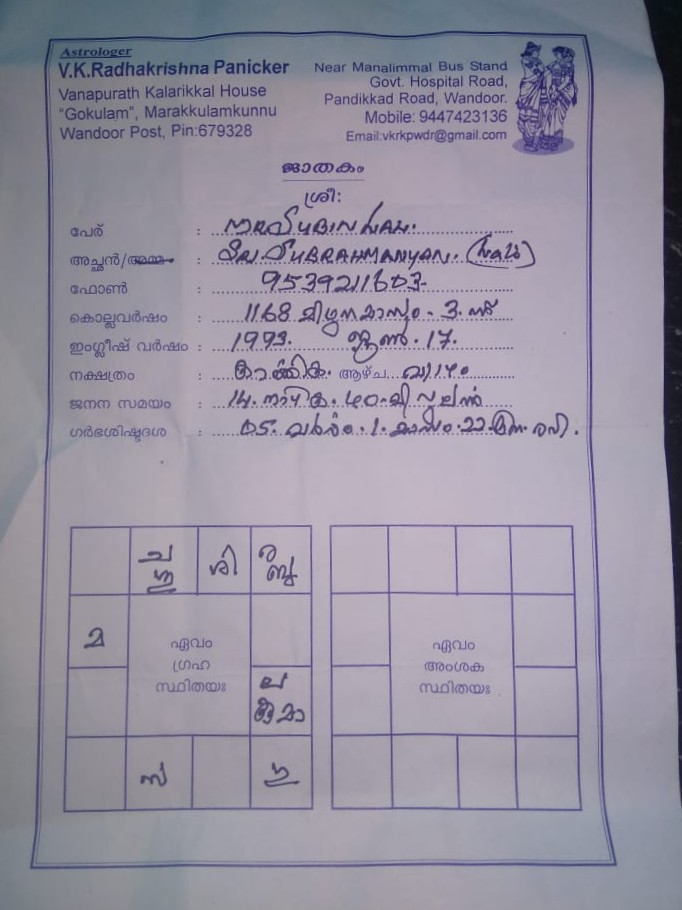 Astrologer
V.K.Radhakrishna Panicker
Vanapurath Kalarikkal House
"Gokulam", Marakkulamkunnu
Wandoor Post, Pin:679328
Near Manalimmal Bus Stand
Govt. Hospital Road,
Pandikkad Road, Wandoor.
Mobile: 9447423136
Email:vkrkpwdr@gmail.com
ജാതകം
ശ്രീ:
പേര് :
അച്ഛൻ/അമ്മ : SUBRAHMANYAN.
ഫോൺ : 9539211603
കൊല്ലവർഷം : 1168 മിഥുനമാസം - 3 - ന്
ഇംഗ്ലീഷ് വർഷം : 1993. ജൂൺ . 17.
നക്ഷത്രം : ആഴ്ച വ്യാഴം
ജനന സമയം : 14. നാഴിക. 40
ഗർഭശിഷ്ടദശ : 05. വർഷം. 1. മാസം. 22. ദിന. രവി.
ച
ശു
ശി
ര
ബു
മ
ഏവം
ഗ്രഹ
സ്ഥിതയഃ
ല
കു മാ
സ
ഗു
ഏവം
അംശക
സ്ഥിതയഃ